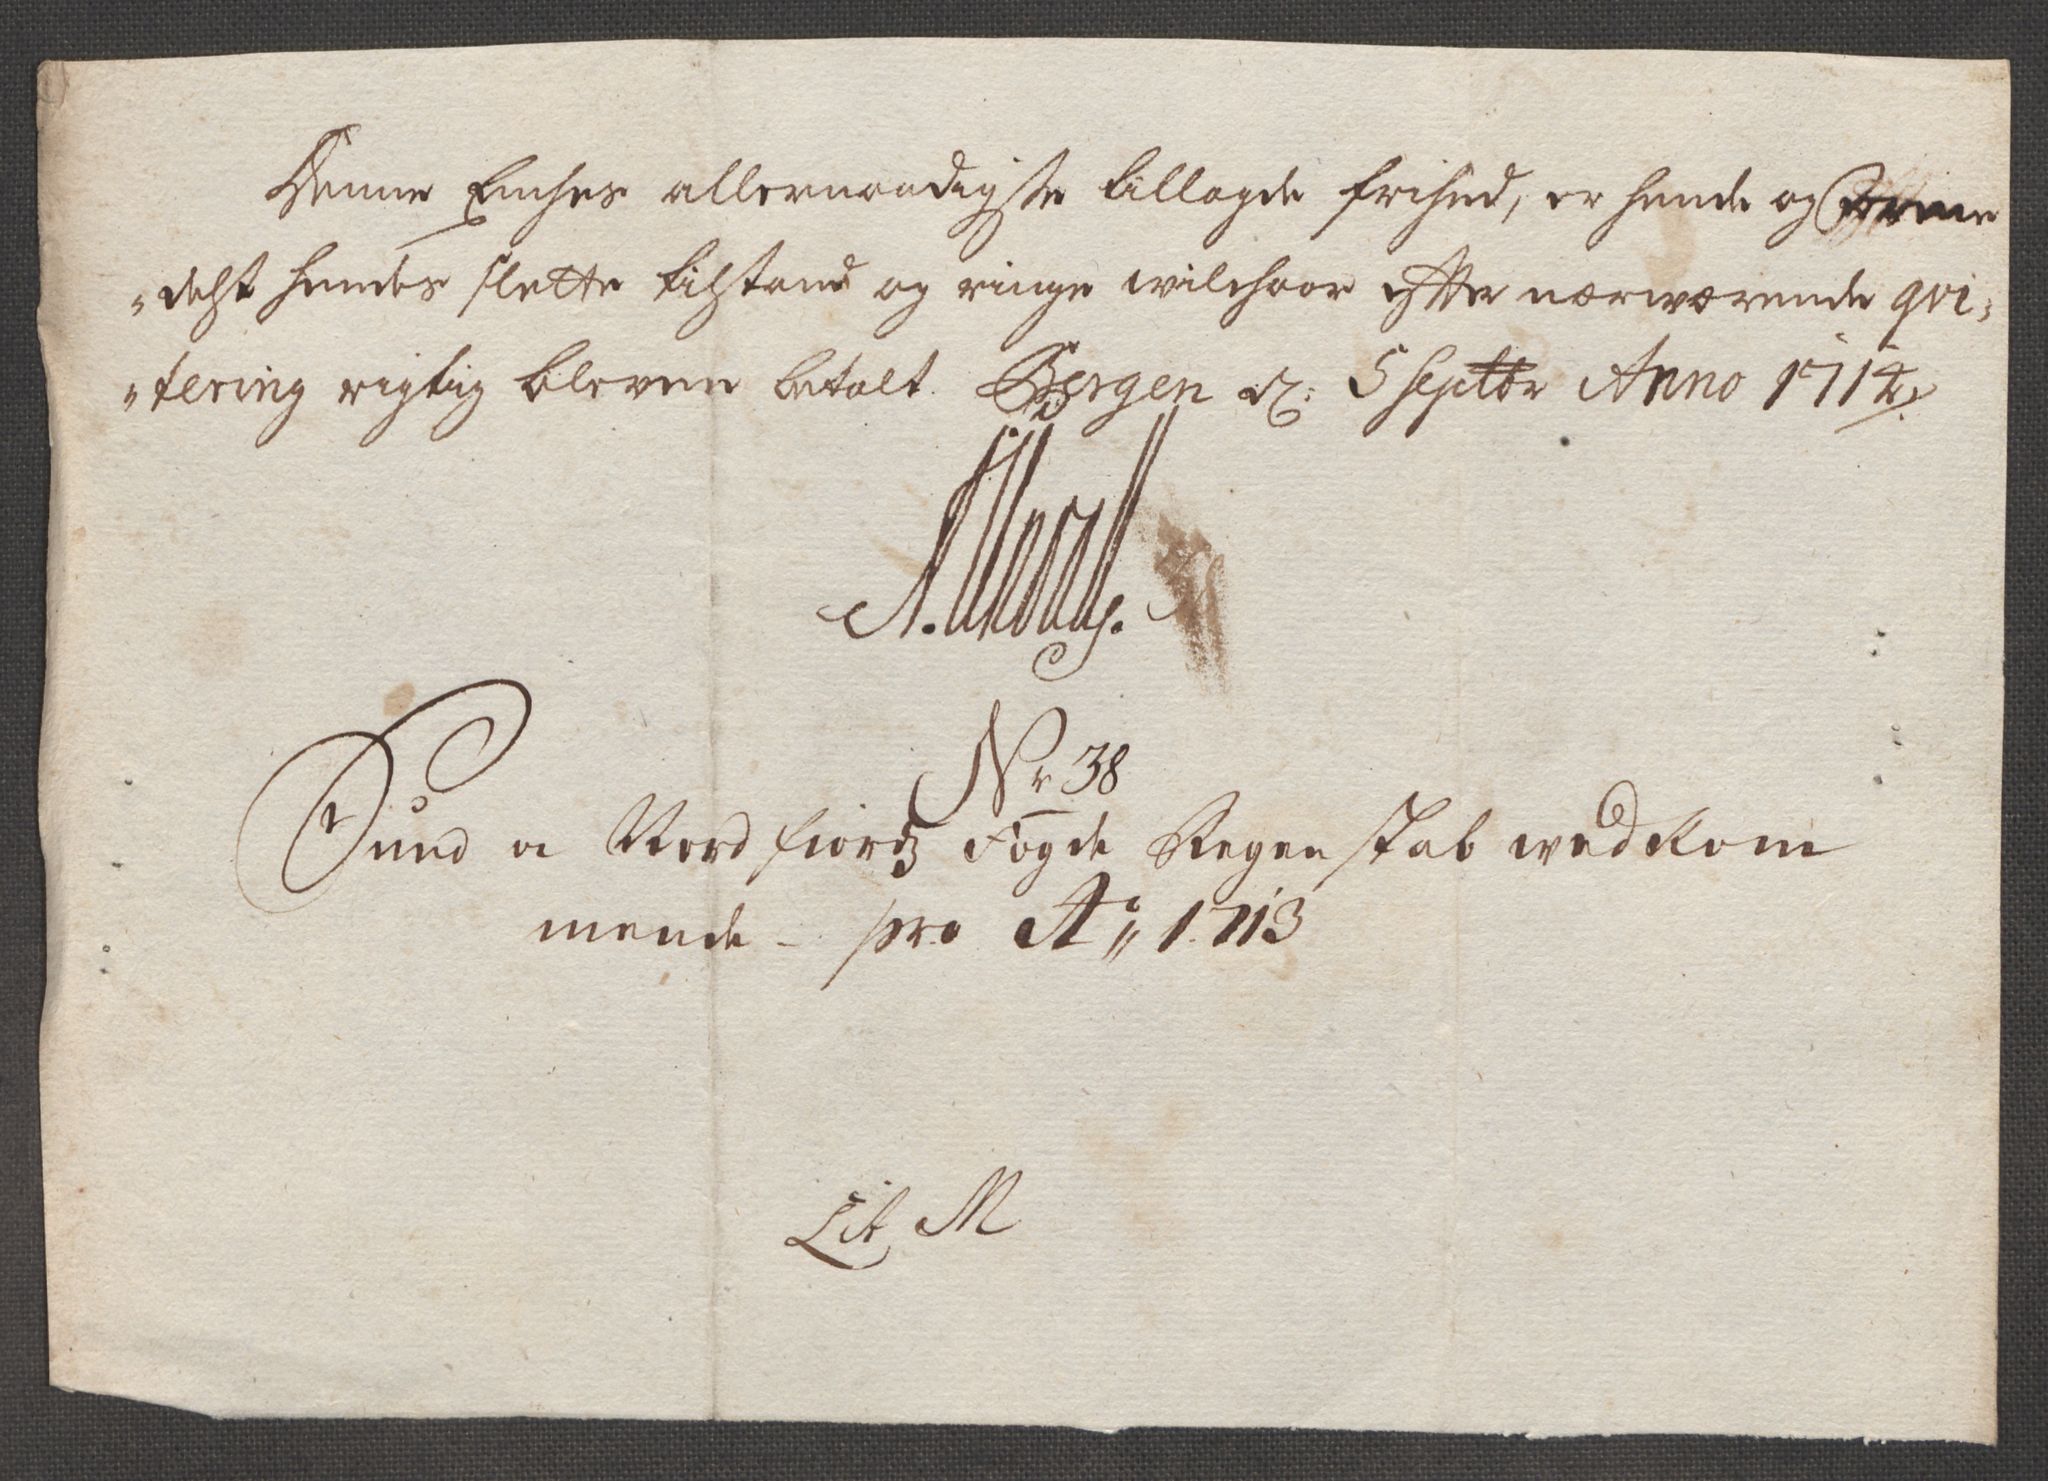 Denne Enches allernaadigste tillagde frihed, er hende og
„delst hendes slette tilstand og ringe wilchaar efter nærwærende qvi,
„tering rigtig bleven betalt. Bergen d: 5 Septbr Anno 1714.
Nr 38
Sund o Nordfiordz Fogde Regenskab wedkom
mende - pro Ao„ 1713
Lit M